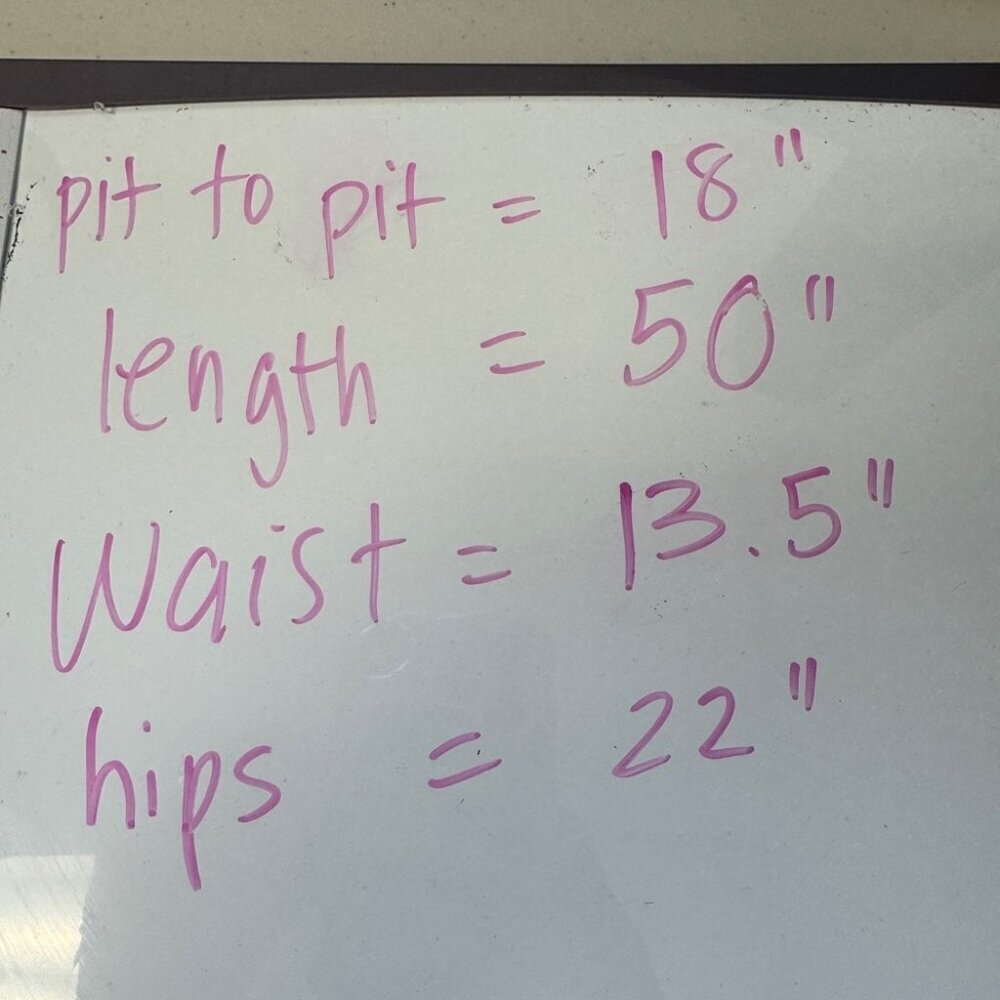 pit to pit = 18"
length = 50"
Waist = 13.5"
hips = 22"